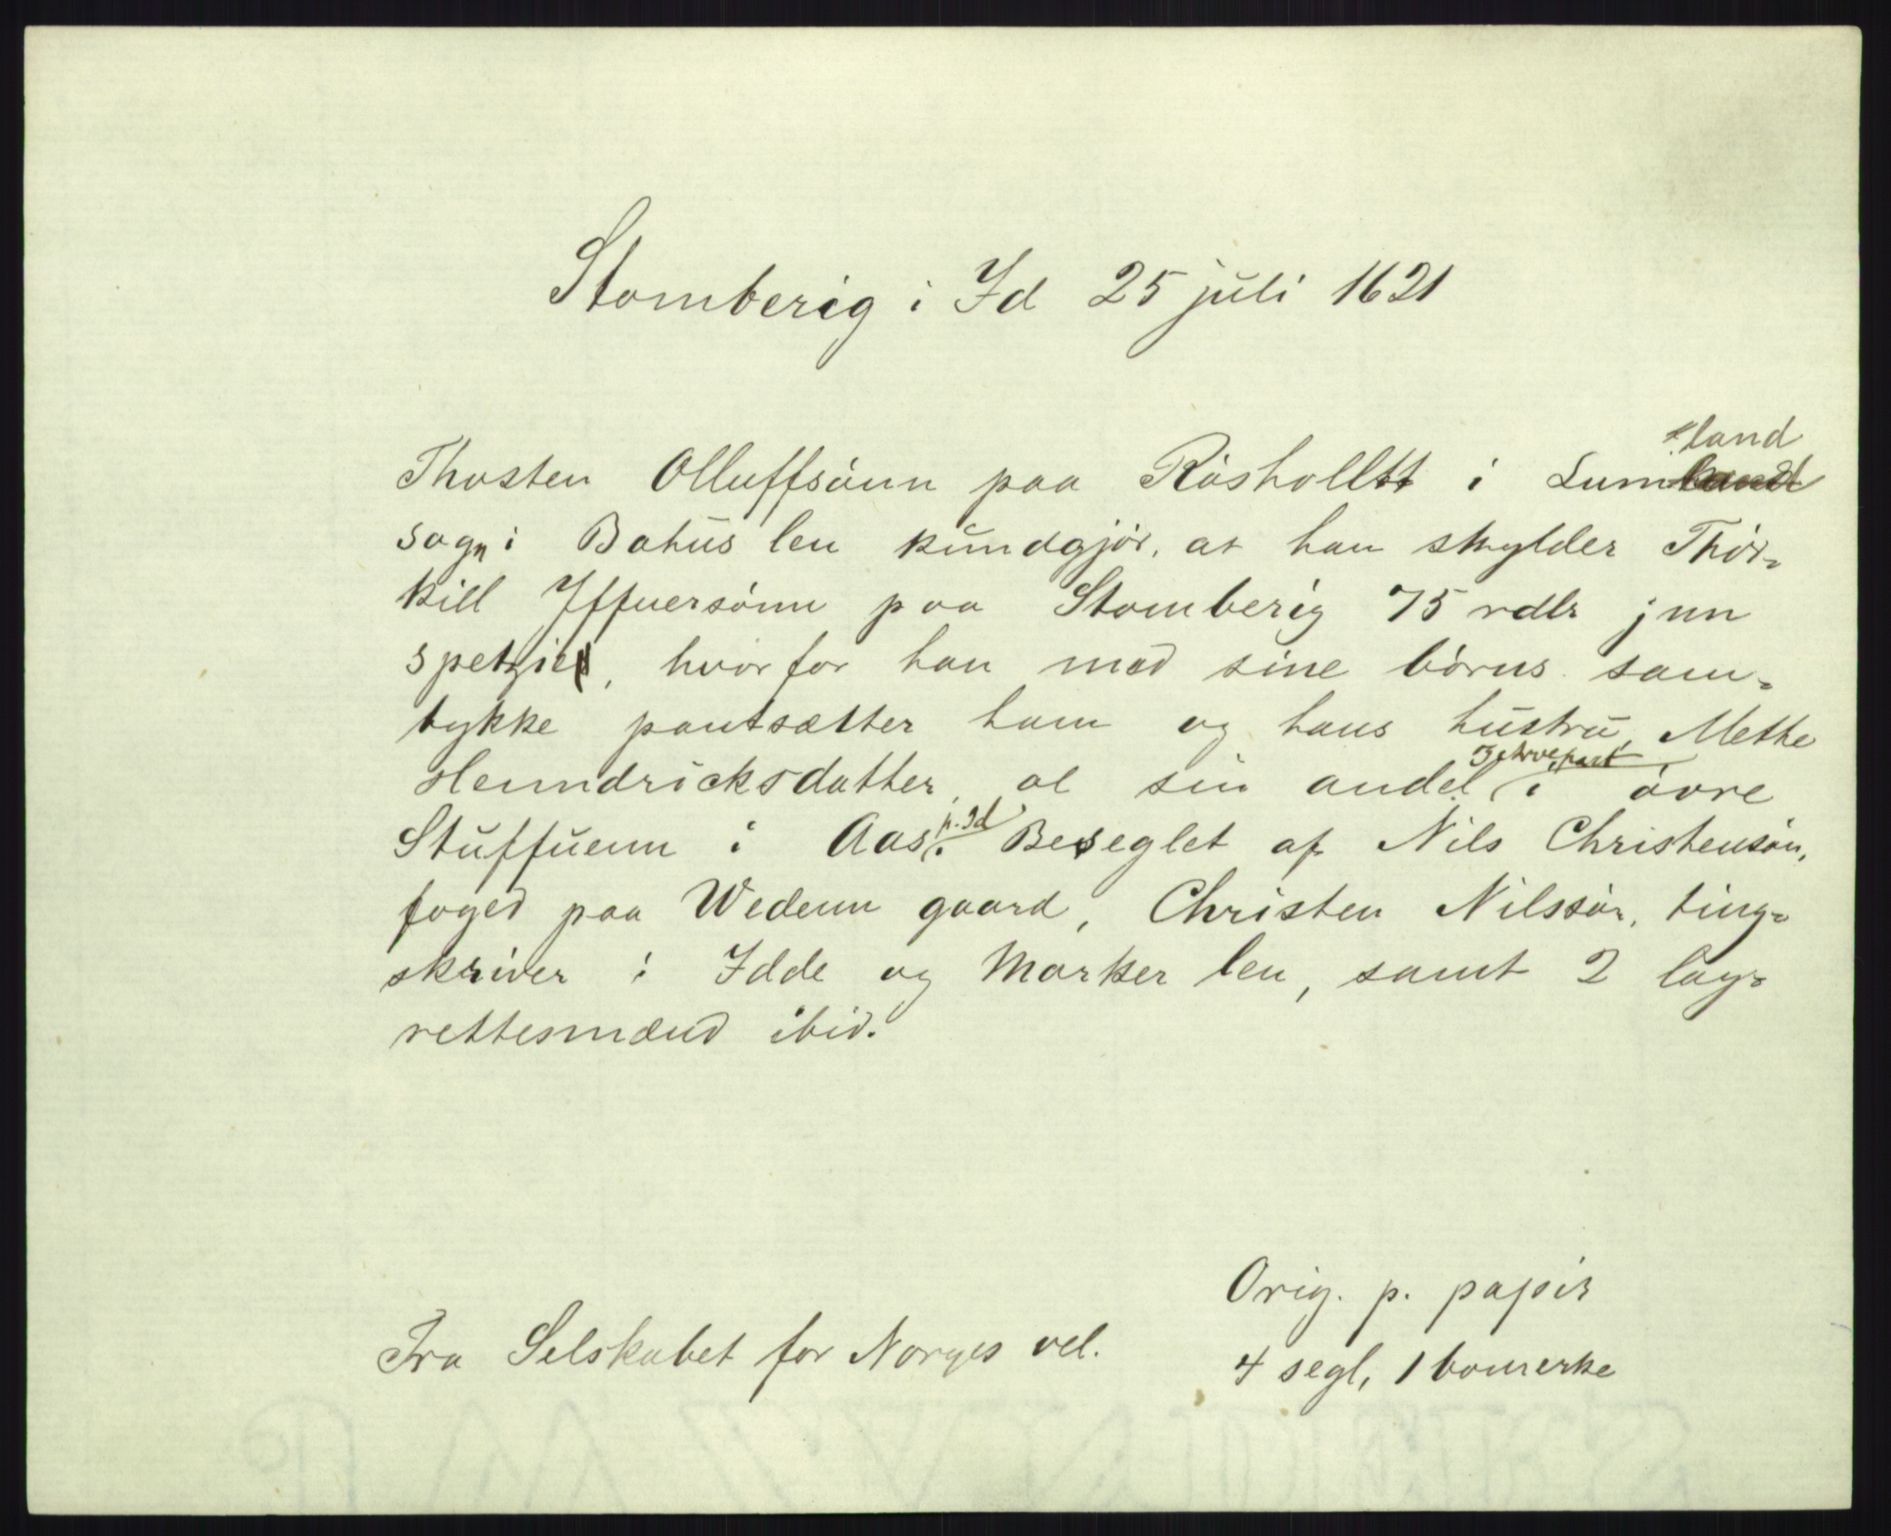 Stomberig i Id 25 juli 1621
Thosten Olluffsønn paa Røsholltt i Lumland
sogn i Bahus len kundgjør, at han skylder Thør-
kill Iffuersønn paa Stomberig 75 rdlr jnn
spetzie, hvorfor han med sine børns sam-
tykke pantsætter ham og hans hustru Methe
Henndricksdatter al sin andel i øvre
Stuffuenn i Aas p. Id. Beseglet af Nils Christensøn,
foged paa Wedenn gaard, Christen Nilssøn, ting-
skriver i Idde og Marker len, samt 2 lag-
rettesmænd ibid.
Orig. p. papir
Fra Selskabet for Norges vel.
4 segl, 1 bomerke